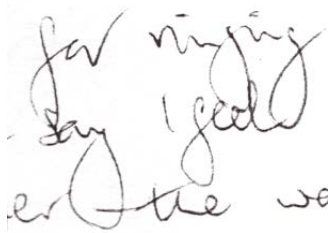 for ringing
say I feel
er the we